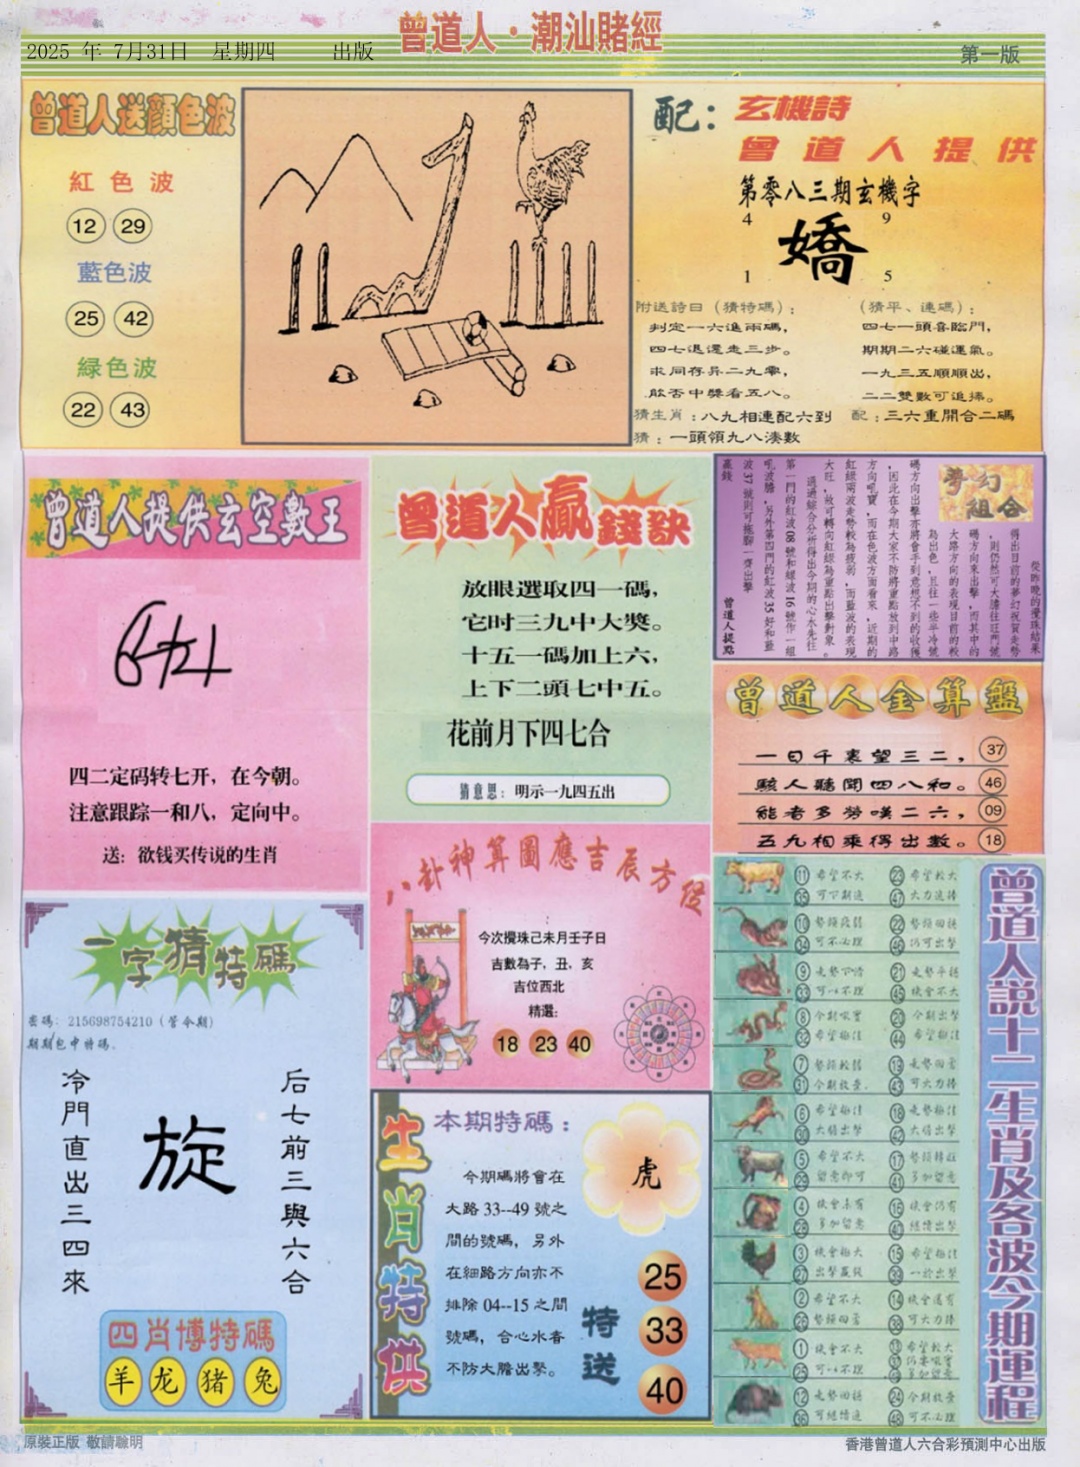 曾道人·潮汕賭經
2025 年 7月31日 星期四 出版
第一版
曾道人送顔色波
紅色波
12 29
藍色波
25 42
緑色波
22 43
配：玄機詩
曾道人提供
第零八三期玄機字
4 9
嬌
1 5
附送詩曰（猜特碼）：
判定一六進兩碼，
四七退還走三步。
求同存异二九零，
啟否中獎看五八。
（猜平、連碼）：
四七一頭喜臨門，
期期二六碰運氣。
一九三五順順出，
二二雙數可追捧。
猜生肖：八九相連配六到
配：三六重開合二碼
猜：一頭領九八湊數
曾道人提供玄空數王
四二定码转七开，在今朝。
注意跟踪一和八，定向中。
送：欲钱买传说的生肖
曾道人贏錢訣
放眼選取四一碼，
它时三九中大獎。
十五一碼加上六，
上下二頭七中五。
花前月下四七合
猜意思：明示一九四五出
夢幻組合
從昨晚的攪珠結果
得出目前的夢幻祝賀走勢
，則仍然可大膽往旺門號
碼方向來出擊，而其中的
大路方向的表現目前的較
為出色，且往一些半冷號
碼方向出擊亦將會手到意想不到的收穫
，因此在今期大家不防將重點放到中路
方向吼寶，而在色波方面看來，近期的
紅綠兩波走勢較為疲弱，而藍波的表現
大旺，故可轉向紅綠為重點出擊對象。
通過綜合分析得出今期的心水先往
第一門的紅波08號和綠波16號作一組
吼波膽，另外第四門的紅波35好和藍
波37號則可拖聯一齊出擊
贏錢
曾道人提點
曾道人金算盤
一日千裏望三二， 37
駭人聽聞四八和。 46
能者多勞嘆二六， 09
五九相乘得出數。 18
八卦神算圖應吉辰方位
今次攪珠己未月壬子日
吉數為子，丑，亥
吉位西北
精選：
18 23 40
一字猜特碼
密碼：215698754210（管令期）
期期包中特碼。
冷門直出三四來
旋
后七前三與六合
四肖博特碼
羊 龙 猪 兔
生肖特供
本期特碼：
今期碼將會在
大路33--49號之
間的號碼，另外
在細路方向亦不
排除04--15之間
號碼，合心水者
不防大膽出擊。
虎
特送
25
33
40
曾道人説十二生肖及各波今期運程
11 希望不大 23 希望較大
35 可下期追 47 大力追捧
10 勢頭疲弱 22 勢頭回穩
34 可不必理 46 仍可出擊
9 走勢下滑 21 走勢平穩
33 可一不理 45 機會不大
8 今期吼實 20 今期出擊
32 希望極佳 44 希望極佳
7 勢頭較弱 19 走勢回番
31 今期放棄 43 可大力捧
6 希望極佳 18 走勢極佳
30 大膽出擊 42 大膽出擊
5 希望不大 17 勢頭轉旺
29 留意即可 41 多加留意
4 機會未有 16 機會仍有
28 多加留意 40 繼續出擊
3 機會極大 15 希望極佳
27 出擊嚴促 39 一於出擊
2 希望不大 14 機會還有
26 勢頭回番 38 可大力捧
1 機會不大 13 希望較大
25 可一不理
12 走勢回穩 24 今期放棄
36 可繼續追 48 可不必理
原裝正版 敬請聰明
香港曾道人六合彩預測中心出版